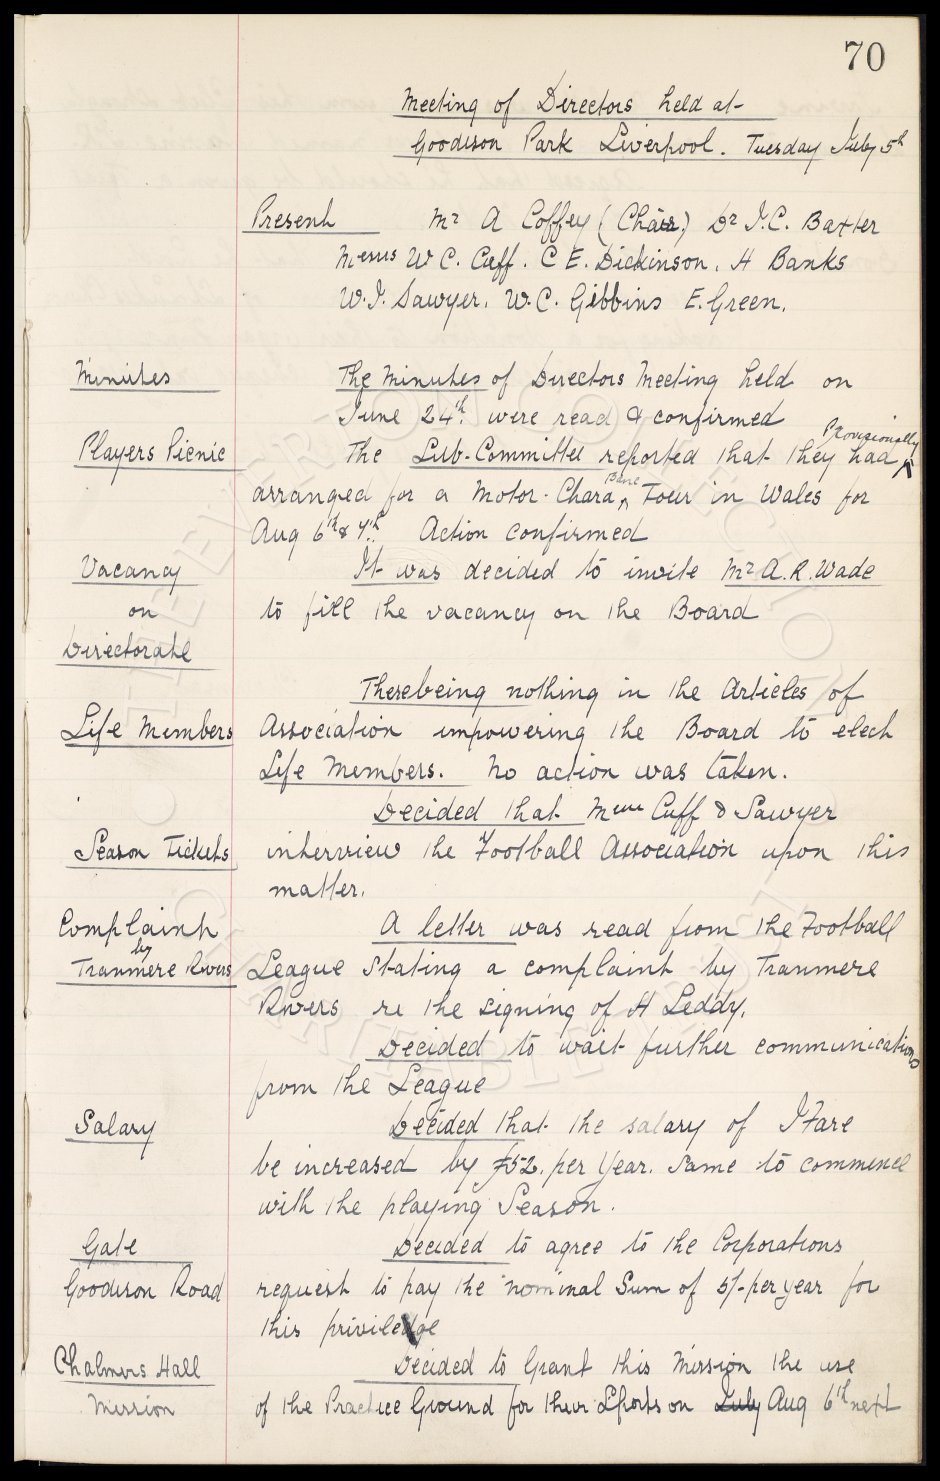 70
Meeting of Directors held at
Goodison Park Liverpool. Tuesday July 5th
Present Mr A Coffey (Chair) Dr J.C. Baxter
Messrs W C. Cuff. C E. Dickinson. H Banks
W.J. Sawyer. W.C. Gibbins E. Green.
Minutes The Minutes of Directors Meeting held on
June 24th. were read & confirmed
Provisionally
Players Picnic The Sub-Committee reported that they had
Banc
arranged for a Motor-Chara Tour in Wales for
Aug 6th & 7th. Action confirmed
Vacancy It was decided to invite Mr A.R. Wade
on to fill the vacancy on the Board
Directorate
There being nothing in the Articles of
Life Members Association empowering the Board to elect
Life Members. No action was taken.
Decided that Messrs Cuff & Sawyer
Season Tickets interview the Football Association upon this
matter.
Complaint A letter was read from the Football
by
Tranmere Rovers League stating a complaint by Tranmere
Rovers re the signing of H Leddy.
Decided to wait further communications
from the League
Salary Decided that the salary of J Fare
be increased by £52. per Year. Same to commence
with the playing Season.
Gate Decided to agree to the Corporations
Goodison Road request to pay the nominal Sum of 5/- per year for
this priviledge
Chalmers Hall Decided to Grant this Mission the use
Mission of the Practice Ground for their Sports on July Aug 6th next